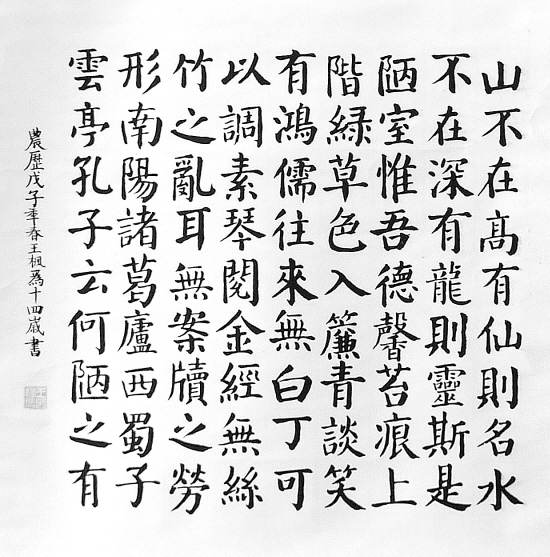 山不在髙有仙則名水
不在深有龍則靈斯是
陋室惟吾德馨苔痕上
階綠草色入簾青談笑
有鴻儒往來無白丁可
以調素琴閱金經無絲
竹之亂耳無案牘之勞
形南陽諸葛廬西蜀子
雲亭孔子云何陋之有
農歷戊子年春王楓爲十四歲書